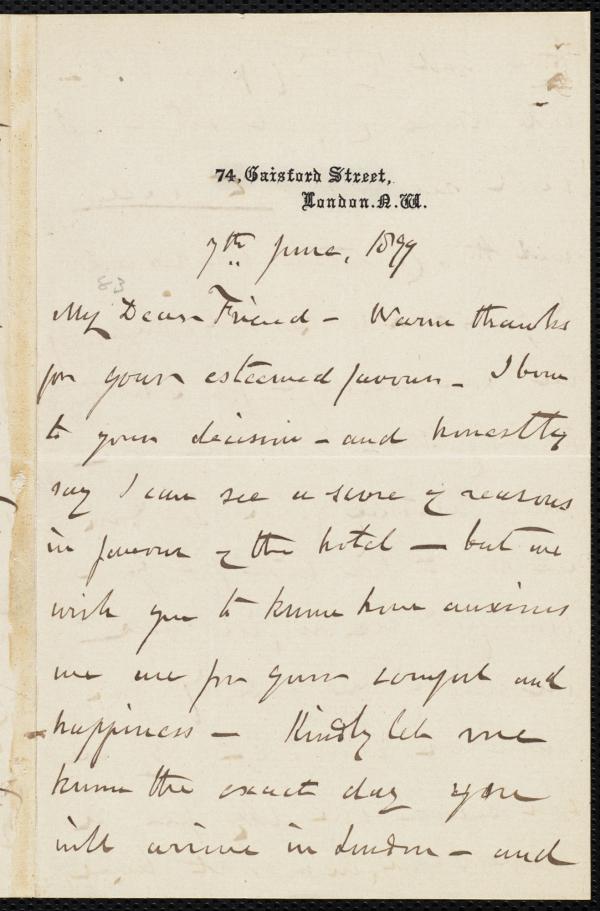 74, Gaisford Street,
London. N. W.
7th June, 1899
83
My Dear Friend - Warm thanks
for your esteemed favour - I bow
to your decision - and honestly
say I can see a score of reasons
in favour of the hotel - but we
wish you to know how anxious
we are for your comfort and
happiness - Kindly let me
know the exact day you
will arrive in London - and